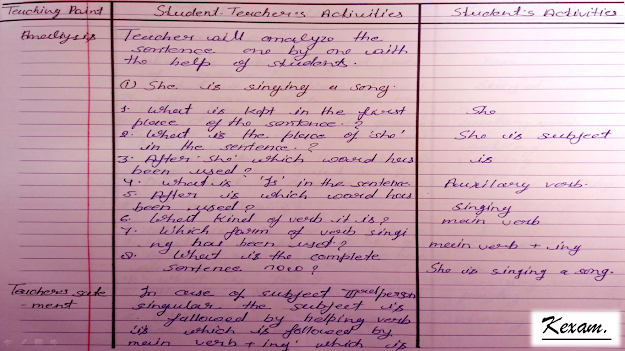 Teaching Point Student-Teacher's Activities Student's Activities
Analysis Teacher will analyze the
sentence one by one with
the help of students.
① She is singing a song.
1. What is kept in the first She
place of the sentence.?
2. What is the place of 'she' She is subject
in the sentence.?
3. After 'she' which word has is
been used?
4. What is 'Is' in the sentence. Auxilary verb.
5. After is which word has
been used? Singing
6. What kind of verb it is? main verb
7. Which form of verb singi
ng has been used? main verb + ing
8. What is the complete
sentence now? She is singing a song.
Teacher's state In case of subject person
-ment singular the subject is
followed by helping verb
is which is followed by
main verb + 'ing' which is
Kexam.